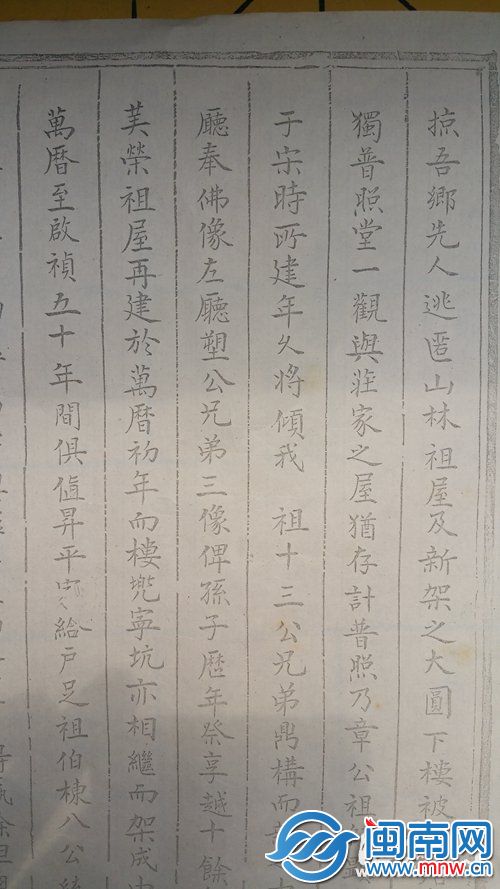 掠吾鄉先人逃匿山林祖屋及新架之大圓下樓被
獨普照堂一觀與莊家之屋猶存計普照乃章公祖
于宋時所建年久將傾我 祖十三公兄弟鼎構而
廳奉佛像左廳塑公兄弟三像俾孫子歷年祭享越十餘
芙榮祖屋再建於萬曆初年而樓兠寧坑亦相繼而架成
萬曆至啟禎五十年間俱值昇平家給戶足祖伯棟八公
閩南网
www.mnw.cn